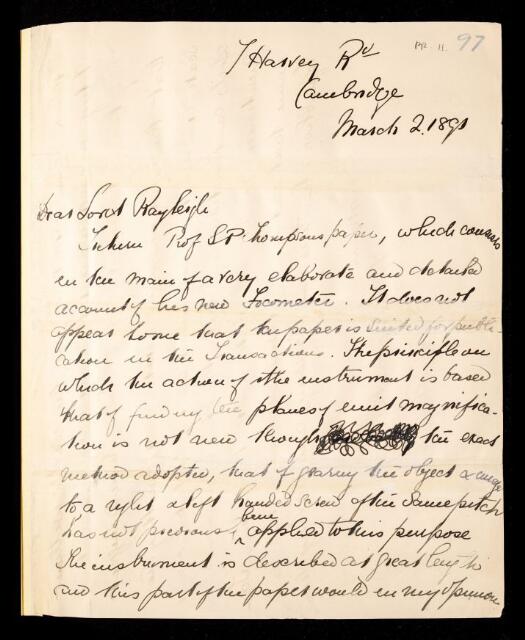 RR. 11. 97
7 Harvey Rd
Cambridge
March 2. 1891
Dear Lord Rayleigh
I return Prof S.P. Thompsons paper, which consists
in the main of a very elaborate and detailed
account of his new Focometer. It does not
appear to me that the paper is suited for publi-
cation in the Transactions. The principle on
which the action of the instrument is based
that of finding the planes of unit magnifica-
tion is not new though the exact
method adopted, that of gearing the object & image
to a right & left handed screw of the same pitch
has not previously been applied to this purpose
The instrument is described at great length
and this part of the paper would in my opinion